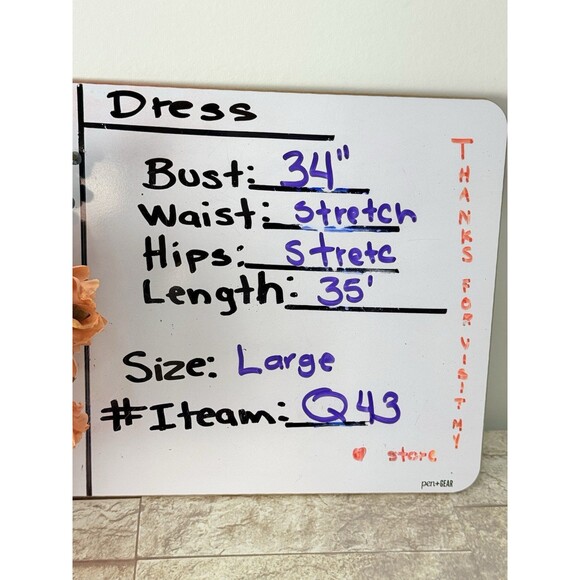 Dress
Bust: 34"
Waist: Stretch
Hips: Stretc
Length: 35'
Size: Large
#Iteam: Q43
THANKS FOR VISIT MY
store
pen+GEAR